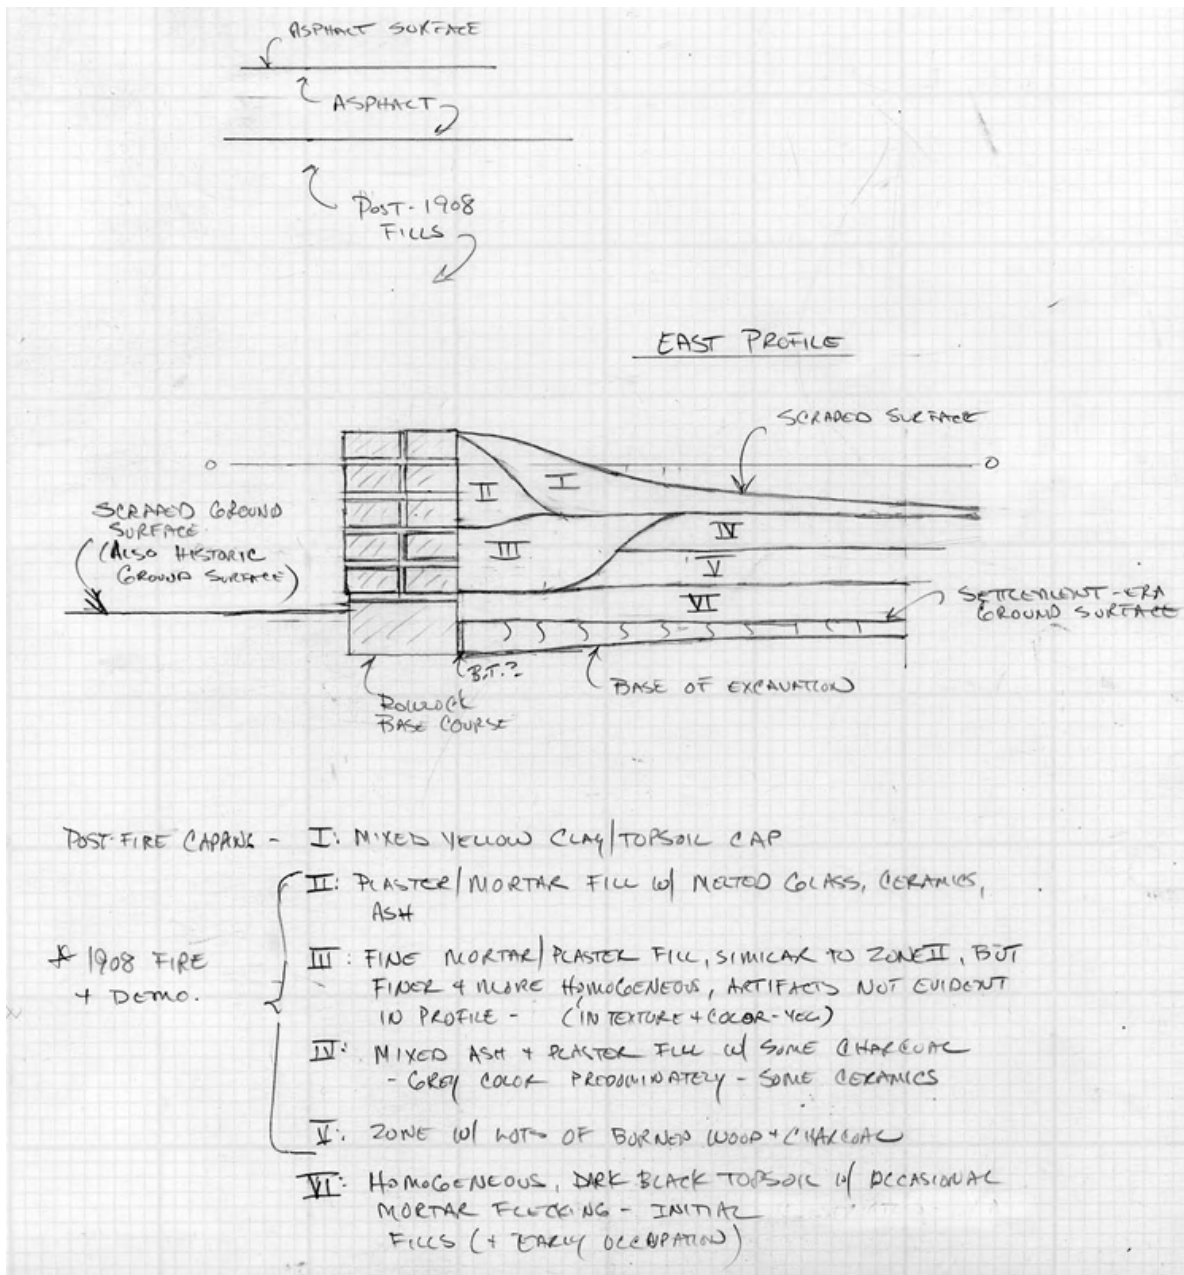 ASPHALT SURFACE
ASPHALT
POST-1908
FILLS
EAST PROFILE
SCRAPED SURFACE
O
O
I
II
III
IV
V
VI
SCRAPED GROUND
SURFACE
(ALSO HISTORIC
GROUND SURFACE)
SETTLEMENT-ERA
GROUND SURFACE
B.T.?
BASE OF EXCAVATION
ROWLOCK
BASE COURSE
POST-FIRE CAPPING - I: MIXED YELLOW CLAY/TOPSOIL CAP
II: PLASTER/MORTAR FILL W/ MELTED GLASS, CERAMICS,
ASH
1908 FIRE
+ DEMO.
III: FINE MORTAR/PLASTER FILL, SIMILAR TO ZONE II, BUT
FINER + MORE HOMOGENEOUS, ARTIFACTS NOT EVIDENT
IN PROFILE - (IN TEXTURE + COLOR-
IV: MIXED ASH + PLASTER FILL W/ SOME CHARCOAL
- GREY COLOR PREDOMINATELY - SOME CERAMICS
V: ZONE W/ LOTS OF BURNED WOOD + CHARCOAL
VI: HOMOGENEOUS, DARK BLACK TOPSOIL W/ OCCASIONAL
MORTAR FLECKING - INITIAL
FILLS (+ EARLY OCCUPATION)